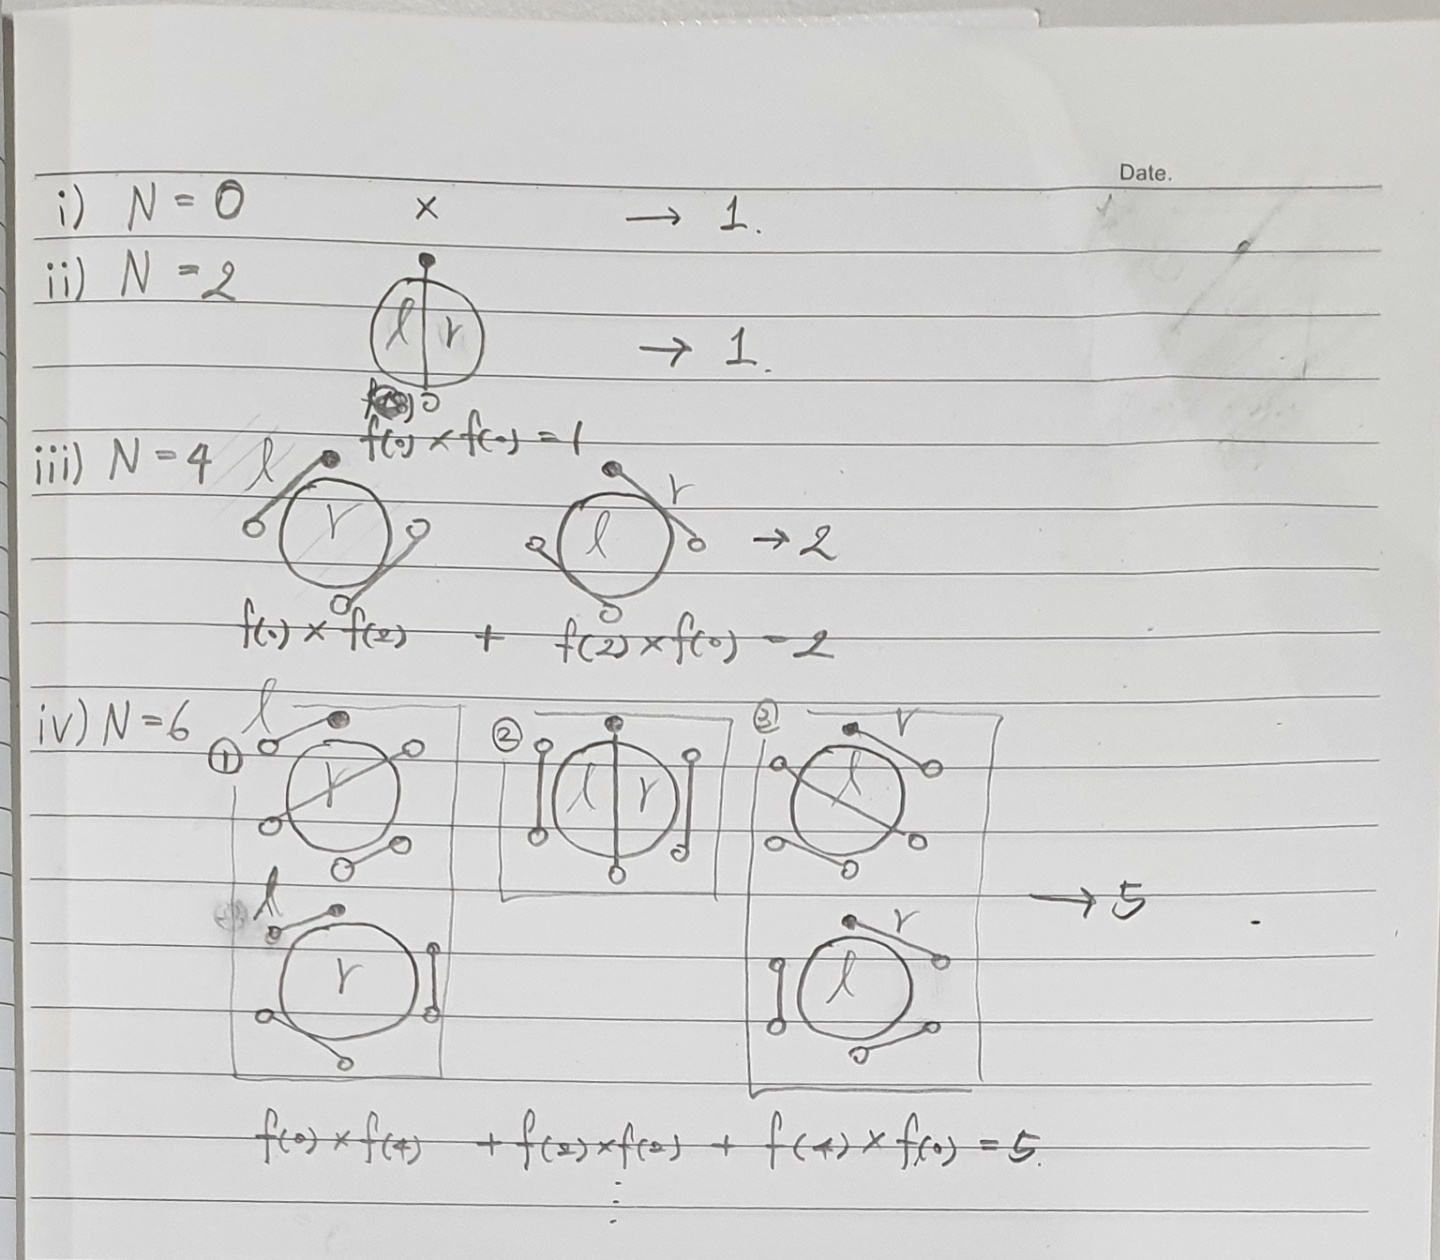 Date.
i) N = 0 × → 1.
ii) N = 2
l r → 1.
f(0) × f(0) = 1
iii) N = 4 l r
r l → 2
f(0) × f(2) + f(2) × f(0) = 2
iv) N = 6 l ② ③ r
① r l r l
l r → 5
r l
f(0) × f(4) + f(2) × f(2) + f(4) × f(0) = 5.
⋮